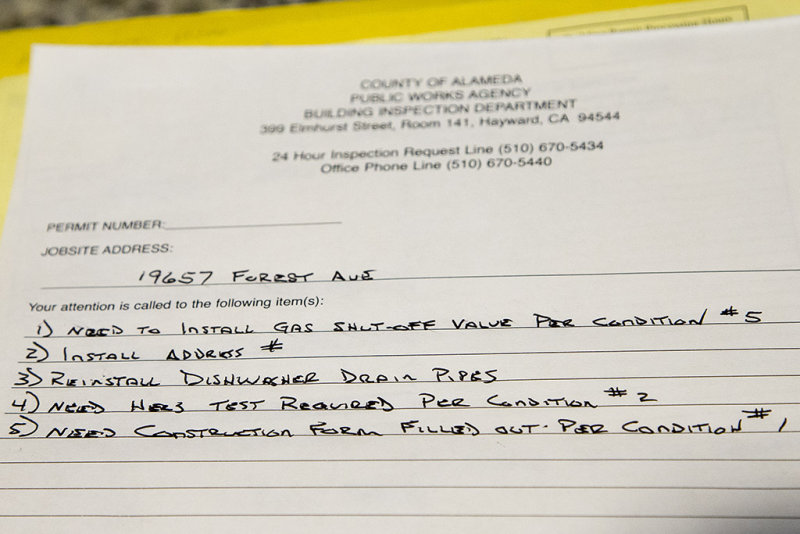 COUNTY OF ALAMEDA
PUBLIC WORKS AGENCY
BUILDING INSPECTION DEPARTMENT
399 Elmhurst Street, Room 141, Hayward, CA 94544
24 Hour Inspection Request Line (510) 670-5434
Office Phone Line (510) 670-5440
PERMIT NUMBER:
JOBSITE ADDRESS:
19657 FOREST AVE
Your attention is called to the following item(s):
1) NEED TO INSTALL GAS SHUT-OFF VALUE PER CONDITION #5
2) INSTALL ADDRESS #
3) REINSTALL DISHWASHER DRAIN PIPES
4) NEED HERS TEST REQUIRED PER CONDITION #2
5) NEED CONSTRUCTION FORM FILLED OUT. PER CONDITION #1